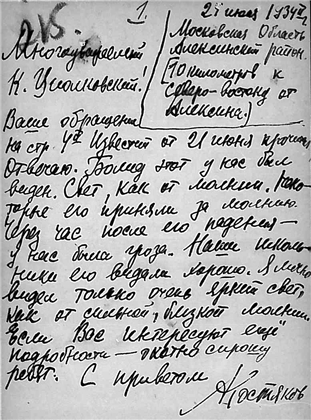 1.
24 июля 1934 г.
Московская Область
Алексинский район.
(10 километров к
северо-востоку от
Алексина.)
Многоуважаемый
Н. Умолковский!
Ваше обращение
на стр. 4й Известий от 21 июня прочитал
Отвечаю. Болид этот у нас был
виден. Свет, как от молнии. Неко-
торые его приняли за молнию.
Через час после его падения —
у нас была гроза. Наши школь-
ники его видали хорошо. Я лично
видел только очень яркий свет,
как от сильной, близкой молнии.
Если Вас интересуют ещё
подробности — охотно спрошу
ребят. С приветом
АКостяков